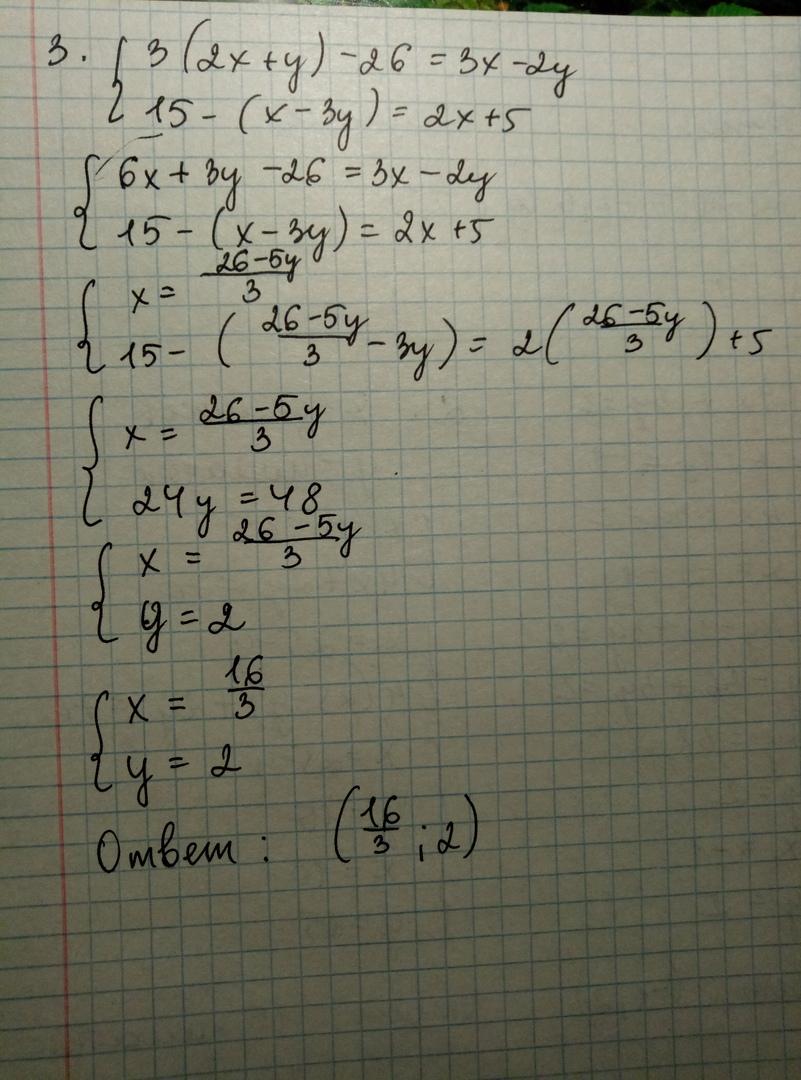 3. { 3(2x+y)-26=3x-2y
15-(x-3y)=2x+5
{ 6x+3y-26=3x-2y
15-(x-3y)=2x+5
{ x= (26-5y)/3
15-((26-5y)/3-3y)=2((26-5y)/3)+5
{ x= (26-5y)/3
24y=48
{ x= (26-5y)/3
y=2
{ x= 16/3
y=2
Ответ: (16/3;2)